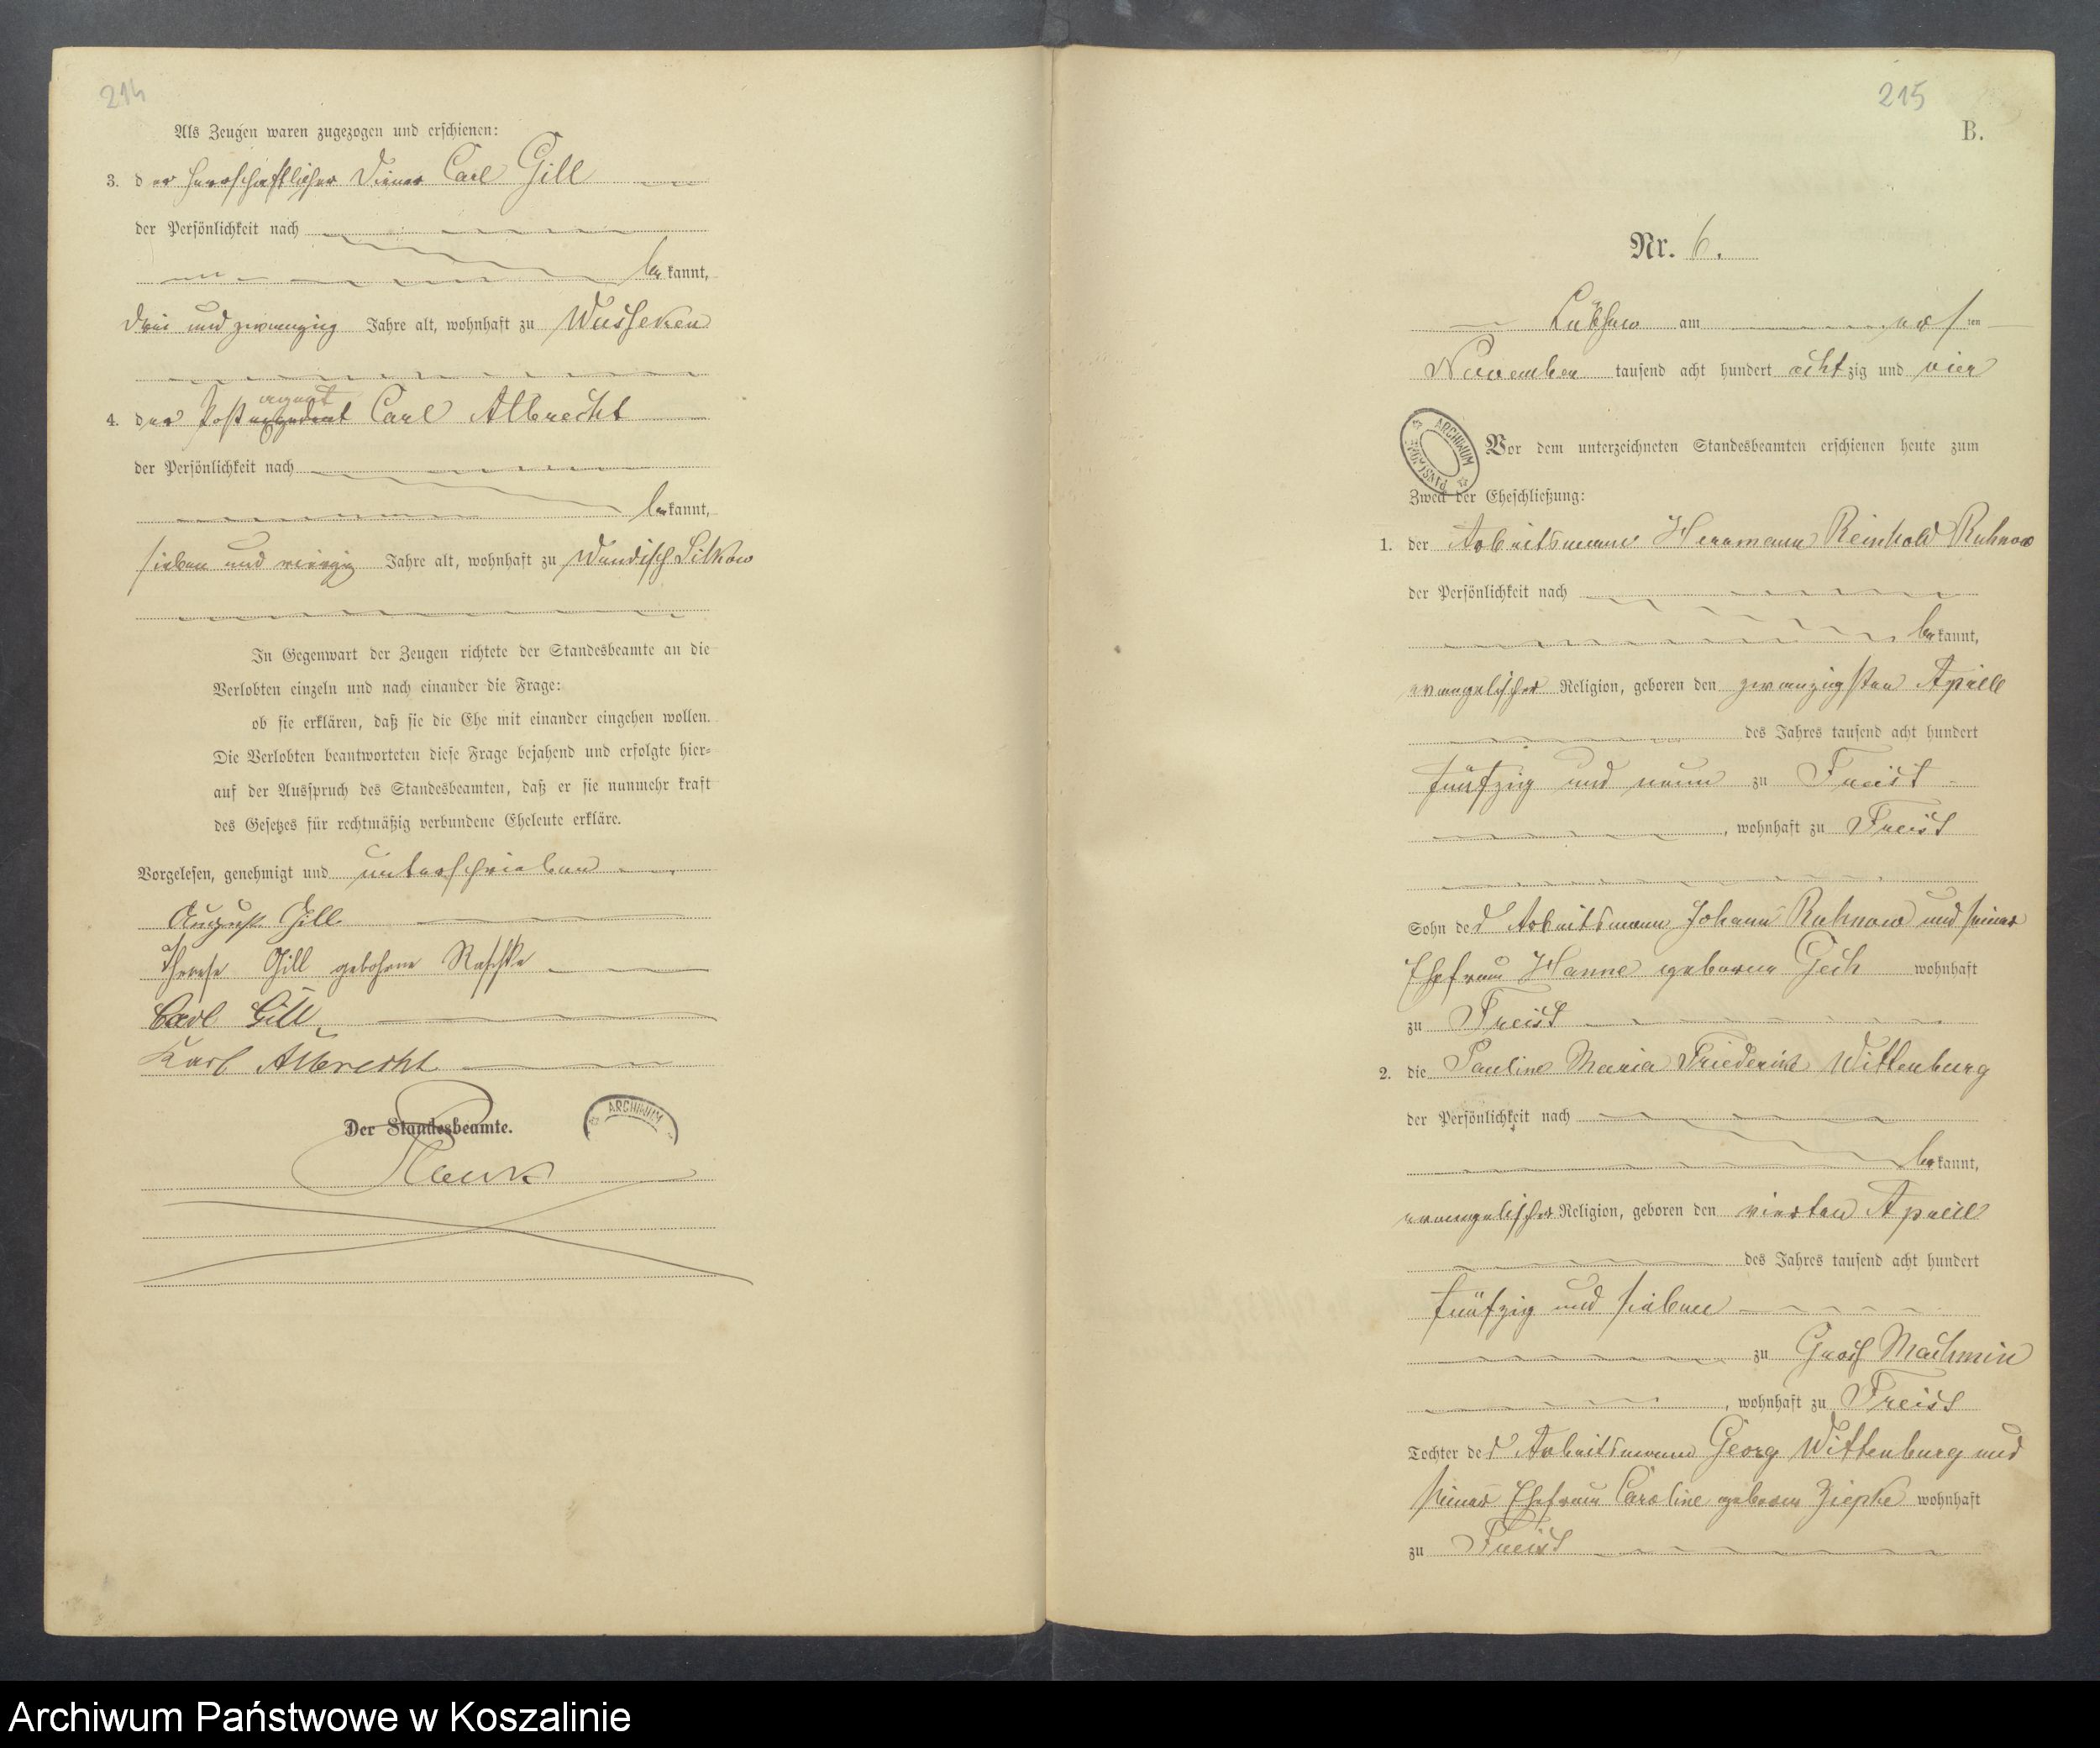 214
Als Zeugen waren zugezogen und erschienen:
3. der herrschaftlicher Diener Carl Gill
der Persönlichkeit nach
bekannt,
drei und zwanzig Jahre alt, wohnhaft zu Wusseken
4. der Postagent Carl Albrecht
der Persönlichkeit nach
bekannt,
sieben und vierzig Jahre alt, wohnhaft zu Wendisch Silkow
In Gegenwart der Zeugen richtete der Standesbeamte an die
Verlobten einzeln und nach einander die Frage:
ob sie erklären, daß sie die Ehe mit einander eingehen wollen.
Die Verlobten beantworteten diese Frage bejahend und erfolgte hier-
auf der Ausspruch des Standesbeamten, daß er sie nunmehr kraft
des Gesetzes für rechtmäßig verbundene Eheleute erkläre.
Vorgelesen, genehmigt und unterschrieben
August Gill
Therese Gill gebohrne Raschke
Carl Gill
Karl Albrecht
Der Standesbeamte.
ARCHIWUM
215
B.
Nr. 6.
am ersten
November tausend acht hundert achtzig und vier
ARCHIWUM
Vor dem unterzeichneten Standesbeamten erschienen heute zum
Zweck der Eheschließung:
1. der Arbeitsmann Herrmann Reinhold Ruhnow
der Persönlichkeit nach
bekannt,
evangelischer Religion, geboren den zwanzigsten Aprill
des Jahres tausend acht hundert
fünfzig und neun zu Freist
, wohnhaft zu Freist
Sohn des Arbeitsmann Johann Ruhnow und seiner
Ehefrau Hanne geborne Gech wohnhaft
zu Freist
2. die Pauline Maria Friederike Wittenburg
der Persönlichkeit nach
bekannt,
evangelischer Religion, geboren den vierten Aprill
des Jahres tausend acht hundert
fünfzig und sieben
zu Gross Machmin
, wohnhaft zu Freist
Tochter des Arbeitsmann Georg Wittenburg und
seiner Ehefrau Caroline geborne Ziepke wohnhaft
zu Freist
Archiwum Państwowe w Koszalinie